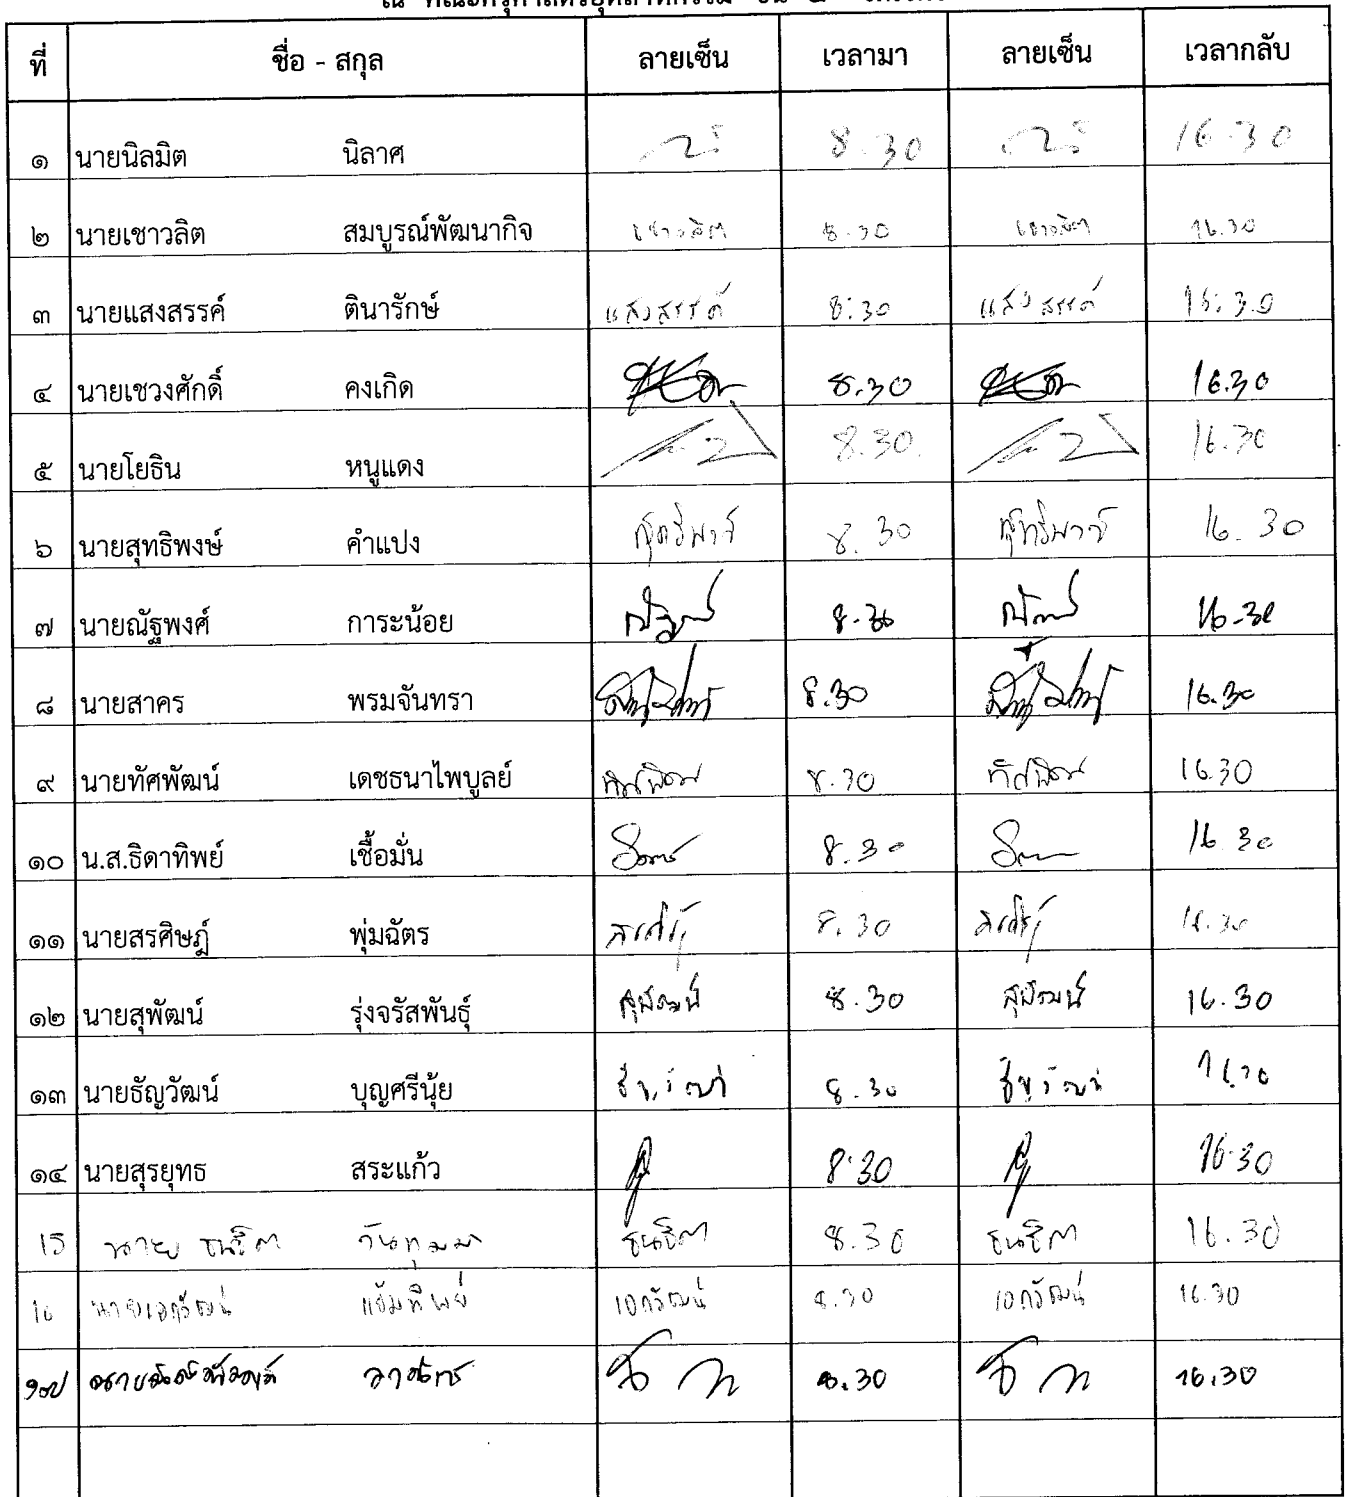 ที่ ชื่อ - สกุล ลายเซ็น เวลามา ลายเซ็น เวลากลับ
๑ นายนิลมิต นิลาศ 8.30 16.30
๒ นายเชาวลิต สมบูรณ์พัฒนากิจ เชาวลิต 8.30 เชาวลิต 16.30
๓ นายแสงสรรค์ ตินารักษ์ แสงสรรค์ 8:30 แสงสรรค์ 16:30
๔ นายเชวงศักดิ์ คงเกิด 8.30 16.30
๕ นายโยธิน หนูแดง 8.30. 16.30
๖ นายสุทธิพงษ์ คำแปง 8.30 16.30
๗ นายณัฐพงศ์ การะน้อย 8.30 16.30
๘ นายสาคร พรมจันทรา 8.30 16.30
๙ นายทัศพัฒน์ เดชธนาไพบูลย์ ทัศพัฒน์ 8.30 ทัศพัฒน์ 16.30
๑๐ น.ส.ธิดาทิพย์ เชื้อมั่น 8.30 16.30
๑๑ นายสรศิษฎ์ พุ่มฉัตร 8.30 16.30
๑๒ นายสุพัฒน์ รุ่งจรัสพันธุ์ สุพัฒน์ 8.30 สุพัฒน์ 16.30
๑๓ นายธัญวัฒน์ บุญศรีนุ้ย ธัญวัฒน์ 8.30 ธัญวัฒน์ 16.30
๑๔ นายสุรยุทธ สระแก้ว 8.30 16.30
15 นาย ธนธิต จันทุมมา ธนธิต 8.30 ธนธิต 16.30
16 นายเอกวัฒน์ แย้มทิพย์ เอกวัฒน์ 8.30 เอกวัฒน์ 16.30
๑๗ 8.30 16.30